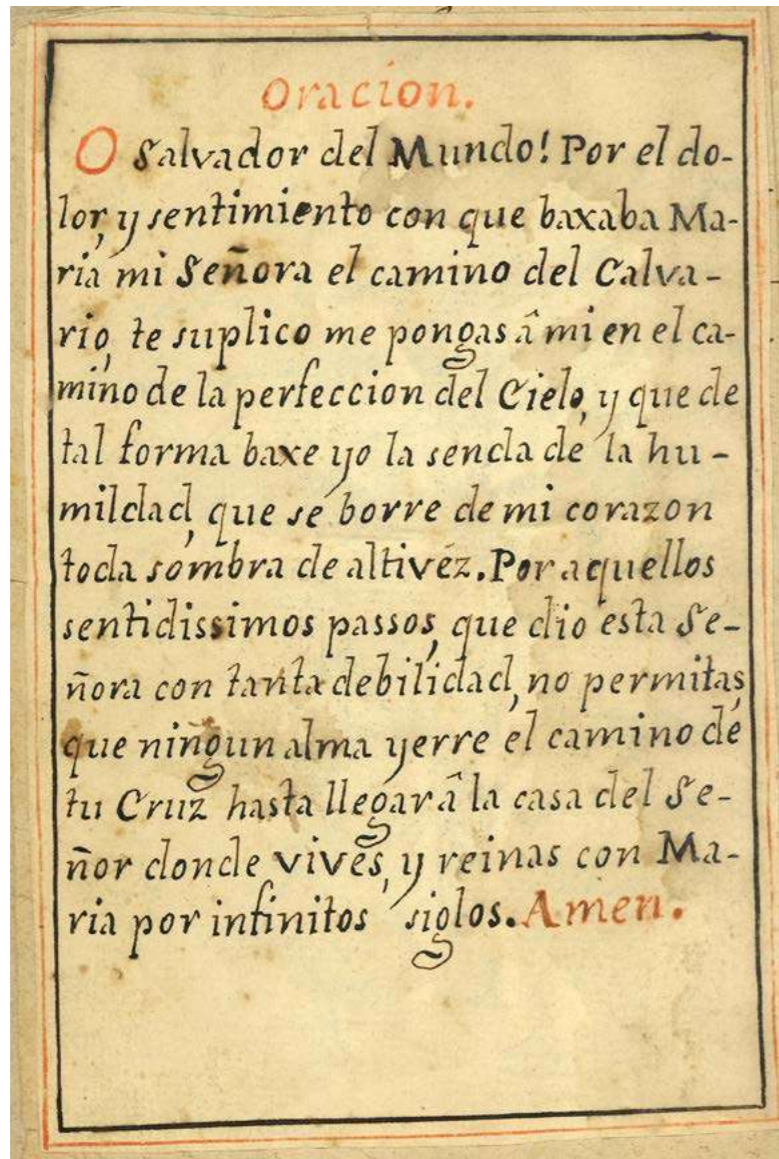 Oracion.
O Salvador del Mundo! Por el do-
lor, y sentimiento con que baxaba Ma-
ria mi Señora el camino del Calva-
rio, te suplico me pongas â mi en el ca-
mino de la perfeccion del Cielo, y que de
tal forma baxe yo la senda de la hu-
mildad, que se borre de mi corazon
toda sombra de altivéz. Por aquellos
sentidissimos passos, que dio esta Se-
ñora con tanta debilidad, no permitas
que ningun alma yerre el camino de
tu Cruz hasta llegar â la casa del Se-
ñor donde vives, y reinas con Ma-
ria por infinitos siglos. Amen.